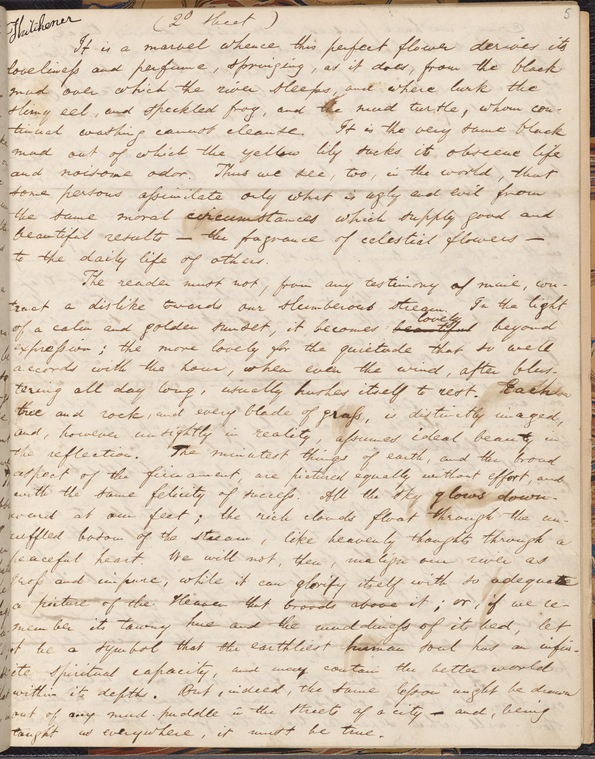 Hutchener
(2d sheet)
5
It is a marvel whence this perfect flower derives its
loveliness and perfume, springing, as it does, from the black
mud over which the river sleeps, and where lurk the
slimy eel, and speckled frog, and the mud turtle, whom con-
tinual washing cannot cleanse. It is the very same black
mud out of which the yellow lily sucks its obscene life
and noisome odor. Thus we see, too, in the world, that
some persons assimilate only what is ugly and evil from
the same moral circumstances which supply good and
beautiful results — the fragrance of celestial flowers —
to the daily life of others.
The reader must not, from any testimony of mine, con-
tract a dislike towards our slumberous stream. In the light
of a calm and golden sunset, it becomes beautiful lovely beyond
expression; the more lovely for the quietude that so well
accords with the hour, when even the wind, after blus-
tering all day long, usually hushes itself to rest. Each
tree and rock, and every blade of grass, is distinctly imaged,
and, however unsightly in reality, assumes ideal beauty in
the reflection. The minutest things of earth, and the broad
aspect of the firmament, are pictured equally without effort, and
with the same felicity of success. All the sky glows down-
ward at our feet; the rich clouds float through the un-
ruffled bosom of the stream, like heavenly thoughts through a
peaceful heart. We will not, then, malign our river as
gross and impure, while it can glorify itself with so adequate
a picture of the Heaven that broods above it; or, if we re-
member its tawny hue and the muddiness of its bed, let
it be a symbol that the earthliest human soul has an infin-
ite spiritual capacity, and may contain the better world
within its depths. But, indeed, the same lesson might be drawn
out of any mud-puddle in the streets of a city — and, being
taught us everywhere, it must be true.